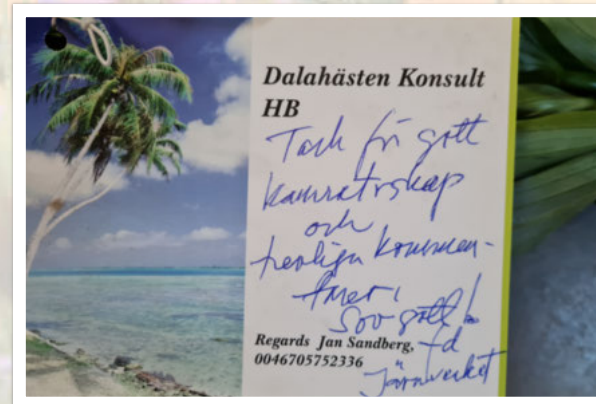 Dalahästen Konsult
HB
Tack för gott
kamratskap
och
trevliga kommen-
tarer,
Sov gott!
Regards Jan Sandberg, fd
0046705752336
Järnverket